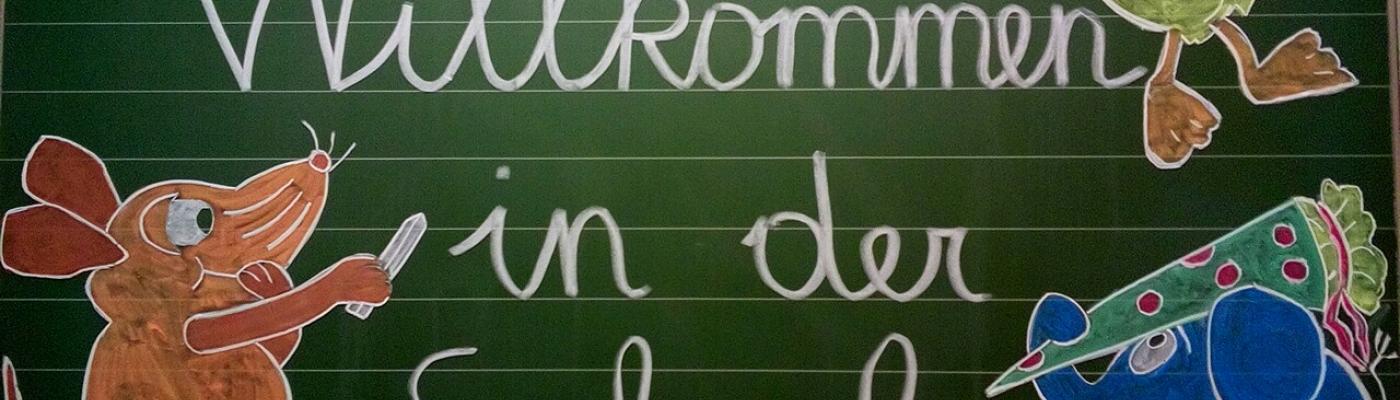 Willkommen
in der